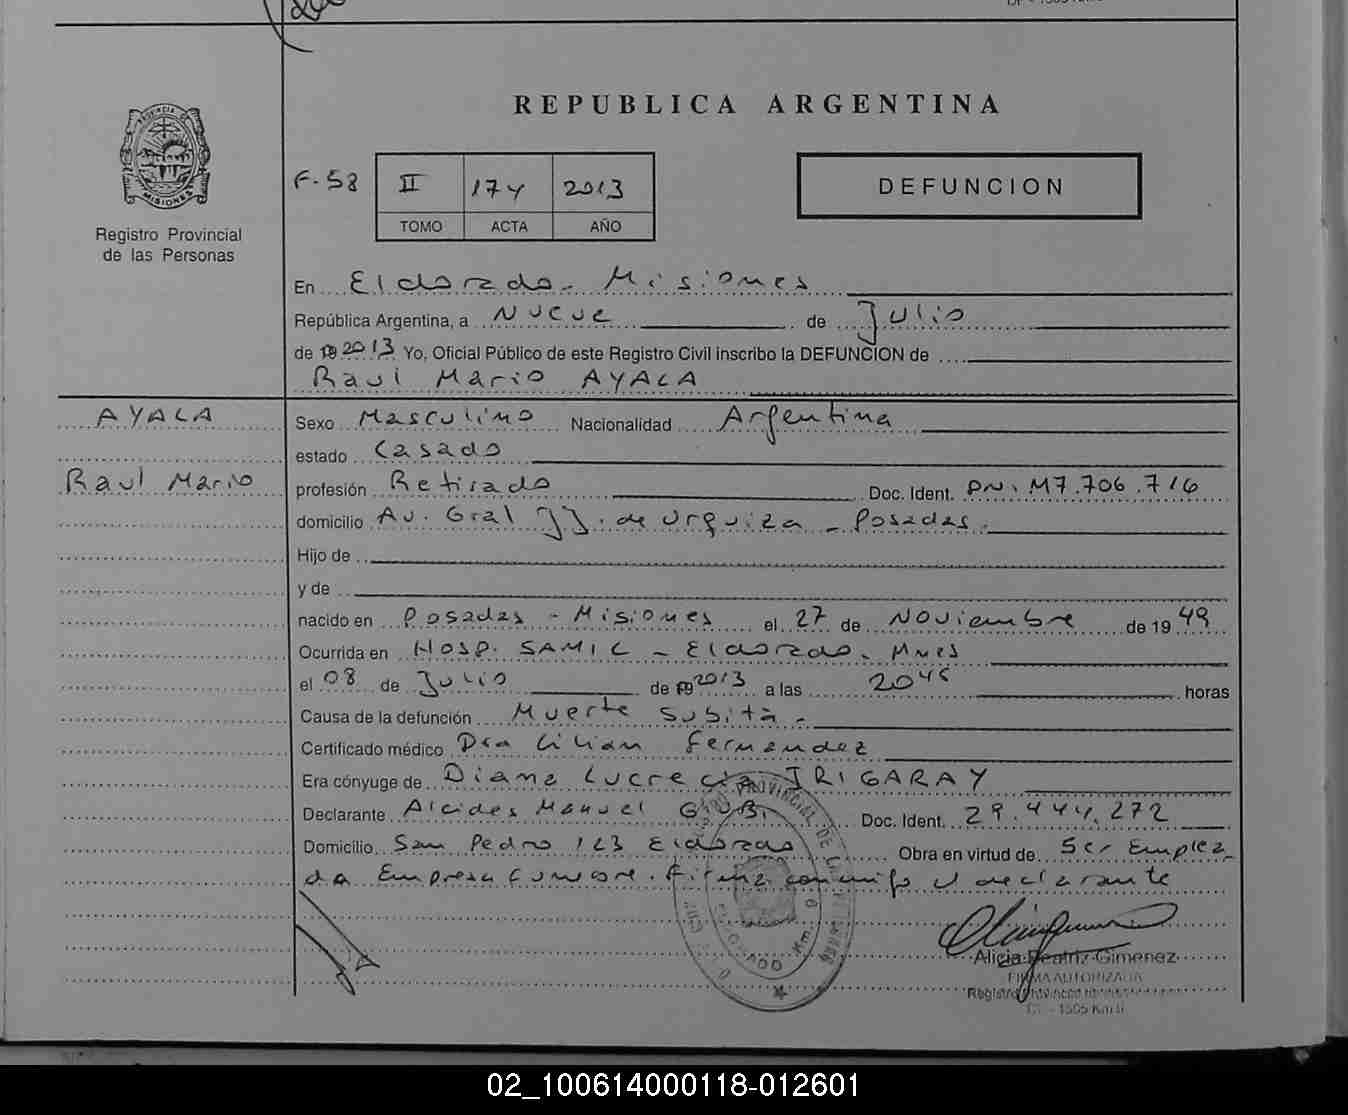 REPUBLICA ARGENTINA
PROVINCIA DE
MISIONES
Registro Provincial
de las Personas
F-58
II 174 2013
TOMO ACTA AÑO
DEFUNCION
En Eldorado - Misiones
República Argentina, a Nueve de Julio
de 19 2013 Yo, Oficial Público de este Registro Civil inscribo la DEFUNCION de
Raul Mario AYALA
AYALA
Raul Mario
Sexo Masculino Nacionalidad Argentina
estado Casado
profesión Retirado Doc. Ident. DNI. M7.706.716
domicilio Av. Gral JJ. de Urquiza - Posadas.
Hijo de
y de
nacido en Posadas - Misiones el 27 de Noviembre de 1949
Ocurrida en Hosp. SAMIC - Eldorado. Mnes
el 08 de Julio de 19 2013 a las 20 45 horas
Causa de la defunción Muerte subita -
Certificado médico Dra Lilian Fernandez
Era cónyuge de Diana Lucrecia IRIGARAY
Declarante Alcides Manuel Doc. Ident. 29.444.272
Domicilio San Pedro 123 Eldorado Obra en virtud de Ser Emplea
do Empresa Firma conmigo el declarante
Alicia Beatriz Gimenez
FIRMA AUTORIZADA
Registro Provincial
02_100614000118-012601